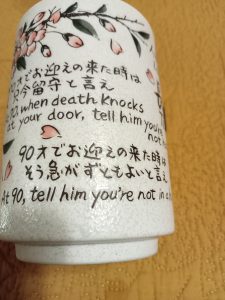 才でお迎えの来た時は
只今留守と言え
when death knocks
at your door, tell him you're
not
90才でお迎えの来た時は
そう急がずともよいと言え
At 90, tell him you're not in a